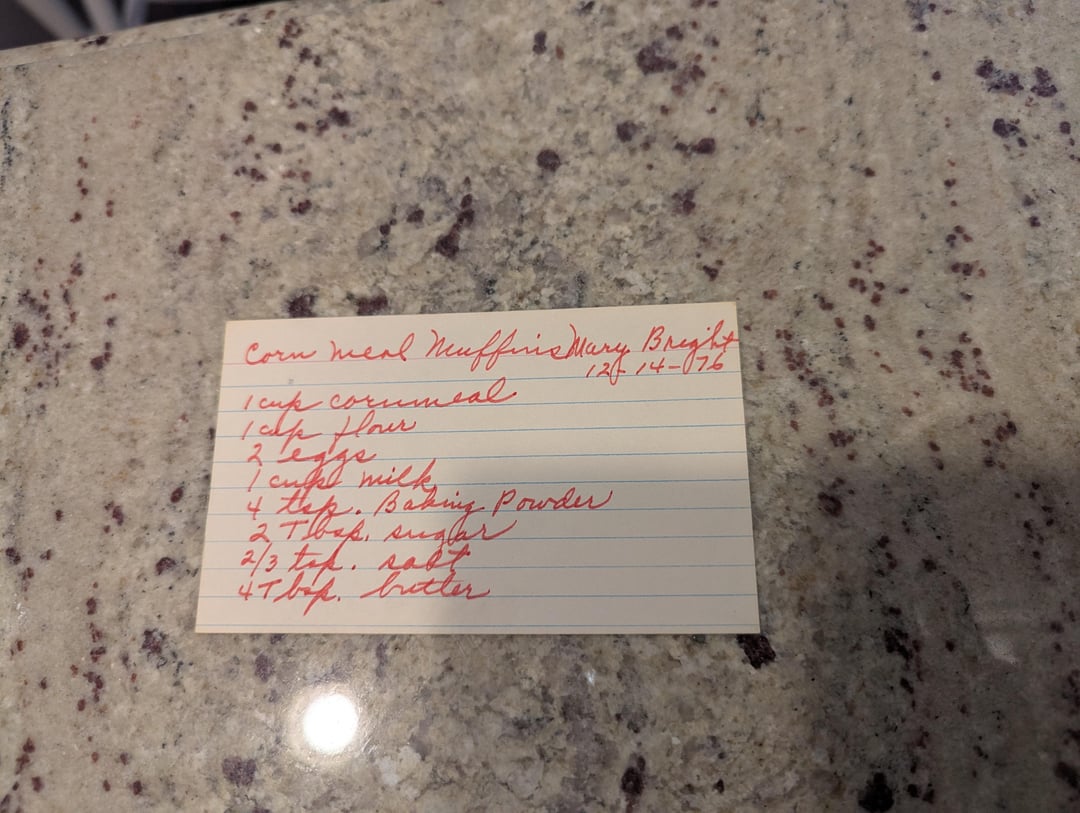 Corn Meal Muffins Mary Bright
12-14-76
1 cup cornmeal
1 cup flour
2 eggs
1 cup milk
4 tsp. Baking Powder
2 Tbsp. sugar
2/3 tsp. salt
4 Tbsp. butter